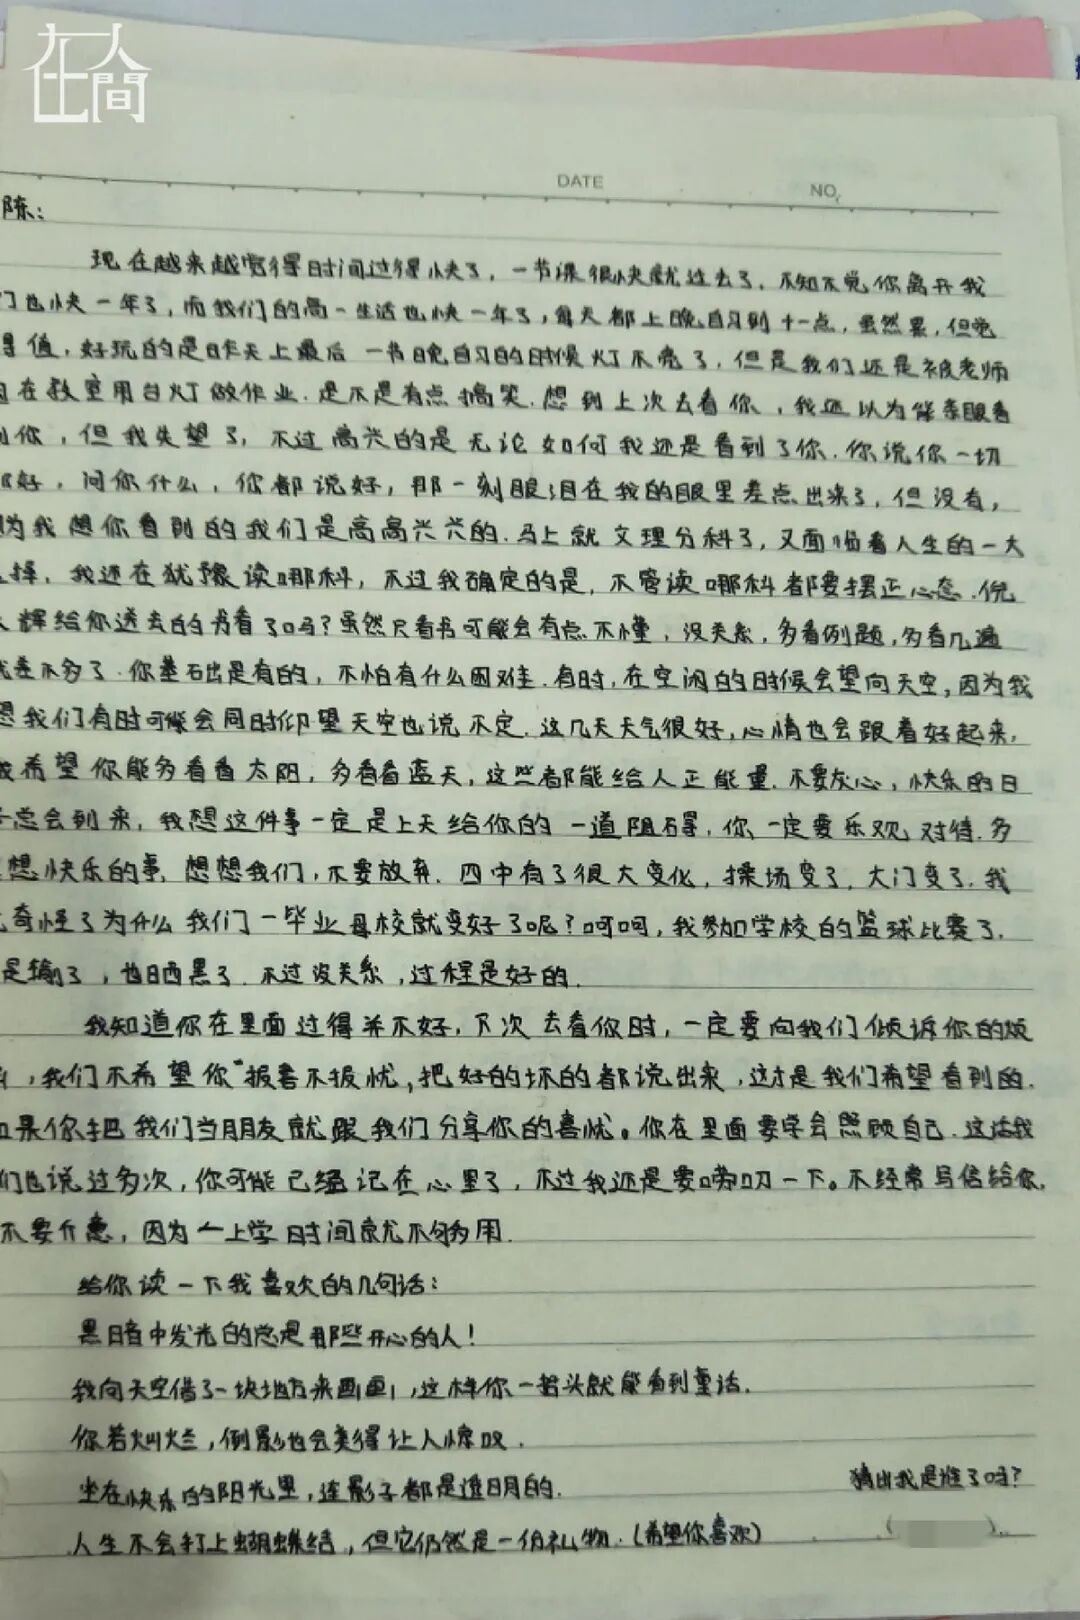 在人間
DATE
NO.
陈：
现在越来越觉得时间过得快了，一节课很快就过去了，不知不觉你离开我
们也快一年了，而我们的高一生活也快一年了，每天都上晚自习到十一点，虽然累，但觉
得值，好玩的是昨天上最后一节晚自习的时候灯不亮了，但是我们还是被老师
在教室用台灯做作业.是不是有点搞笑.想到上次去看你，我还以为能亲眼看
到你，但我失望了，不过高兴的是无论如何我还是看到了你.你说你一切
都好，问你什么，你都说好，那一刻眼泪在我的眼里差点出来了，但没有，
因为我想你看到的我们是高高兴兴的.马上就文理分科了，又面临着人生的一大
选择，我还在犹豫读哪科，不过我确定的是，不管读哪科都要摆正心态.倪
辉给你送去的书看了吗？虽然只看书可能会有点不懂，没关系，多看例题，多看几遍
就差不多了.你基础是有的，不怕有什么困难.有时，在空闲的时候会望向天空，因为我
想我们有时可能会同时仰望天空也说不定.这几天天气很好，心情也会跟着好起来，
我希望你能多看看太阳，多看看蓝天，这些都能给人正能量.不要灰心，快乐的日
子总会到来，我想这件事一定是上天给你的一道阻碍，你一定要乐观对待.多
想想快乐的事，想想我们，不要放弃.四中有了很大变化，操场变了，大门变了.我
奇怪了为什么我们一毕业母校就变好了呢？呵呵，我参加学校的篮球比赛了.
是输了，也晒黑了.不过没关系，过程是好的.
我知道你在里面过得并不好，下次去看你时，一定要向我们倾诉你的烦
，我们不希望你“报喜不报忧，把好的坏的都说出来，这才是我们希望看到的.
如果你把我们当朋友就跟我们分享你的喜忧。你在里面要学会照顾自己.这话我
们也说过多次，你可能已经记在心里了，不过我还是要唠叨一下。不经常写信给你，
不要介意，因为一上学时间就不够用.
给你读一下我喜欢的几句话：
黑暗中发光的总是那些开心的人！
我向天空借了一块地方来画画，这样你一抬头就能看到童话.
你若灿烂，倒影也会美得让人惊叹.
坐在快乐的阳光里，连影子都是透明的.
猜出我是谁了吗？
人生不会打上蝴蝶结，但它仍然是一份礼物.（希望你喜欢）
（ ）.